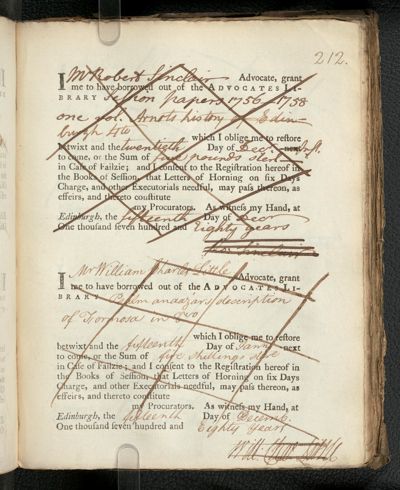 212.
I Mr Robert Sinclair Advocate, grant
me to have borrowed out of the ADVOCATES LI-
BRARY Session papers 1756 - 1758
one vol. Arnots history of Edin-
burgh 4to
which I oblige me to restore
betwixt and the twentieth Day of Decr. next
to come, or the Sum of five pounds sterl.
in Case of Failzie; and I consent to the Registration hereof in
the Books of Session, that Letters of Horning on six Days
Charge, and other Executorials needful, may pass thereon, as
effeirs, and thereto constitute
my Procurators. As witness my Hand, at
Edinburgh, the fifteenth Day of Decr
One thousand seven hundred and Eighty years
Sinclair
I Mr William Charles Little Advocate, grant
me to have borrowed out of the ADVOCATES LI-
BRARY Psalmanaazars description
of Formosa in 8vo
which I oblige me to restore
betwixt and the fifteenth Day of Janry next
to come, or the Sum of five shillings
in Case of Failzie; and I consent to the Registration hereof in
the Books of Session, that Letters of Horning on six Days
Charge, and other Executorials needful, may pass thereon, as
effeirs, and thereto constitute
my Procurators. As witness my Hand, at
Edinburgh, the fifteenth Day of Decemr.
One thousand seven hundred and Eighty Years
Will. Charles Little